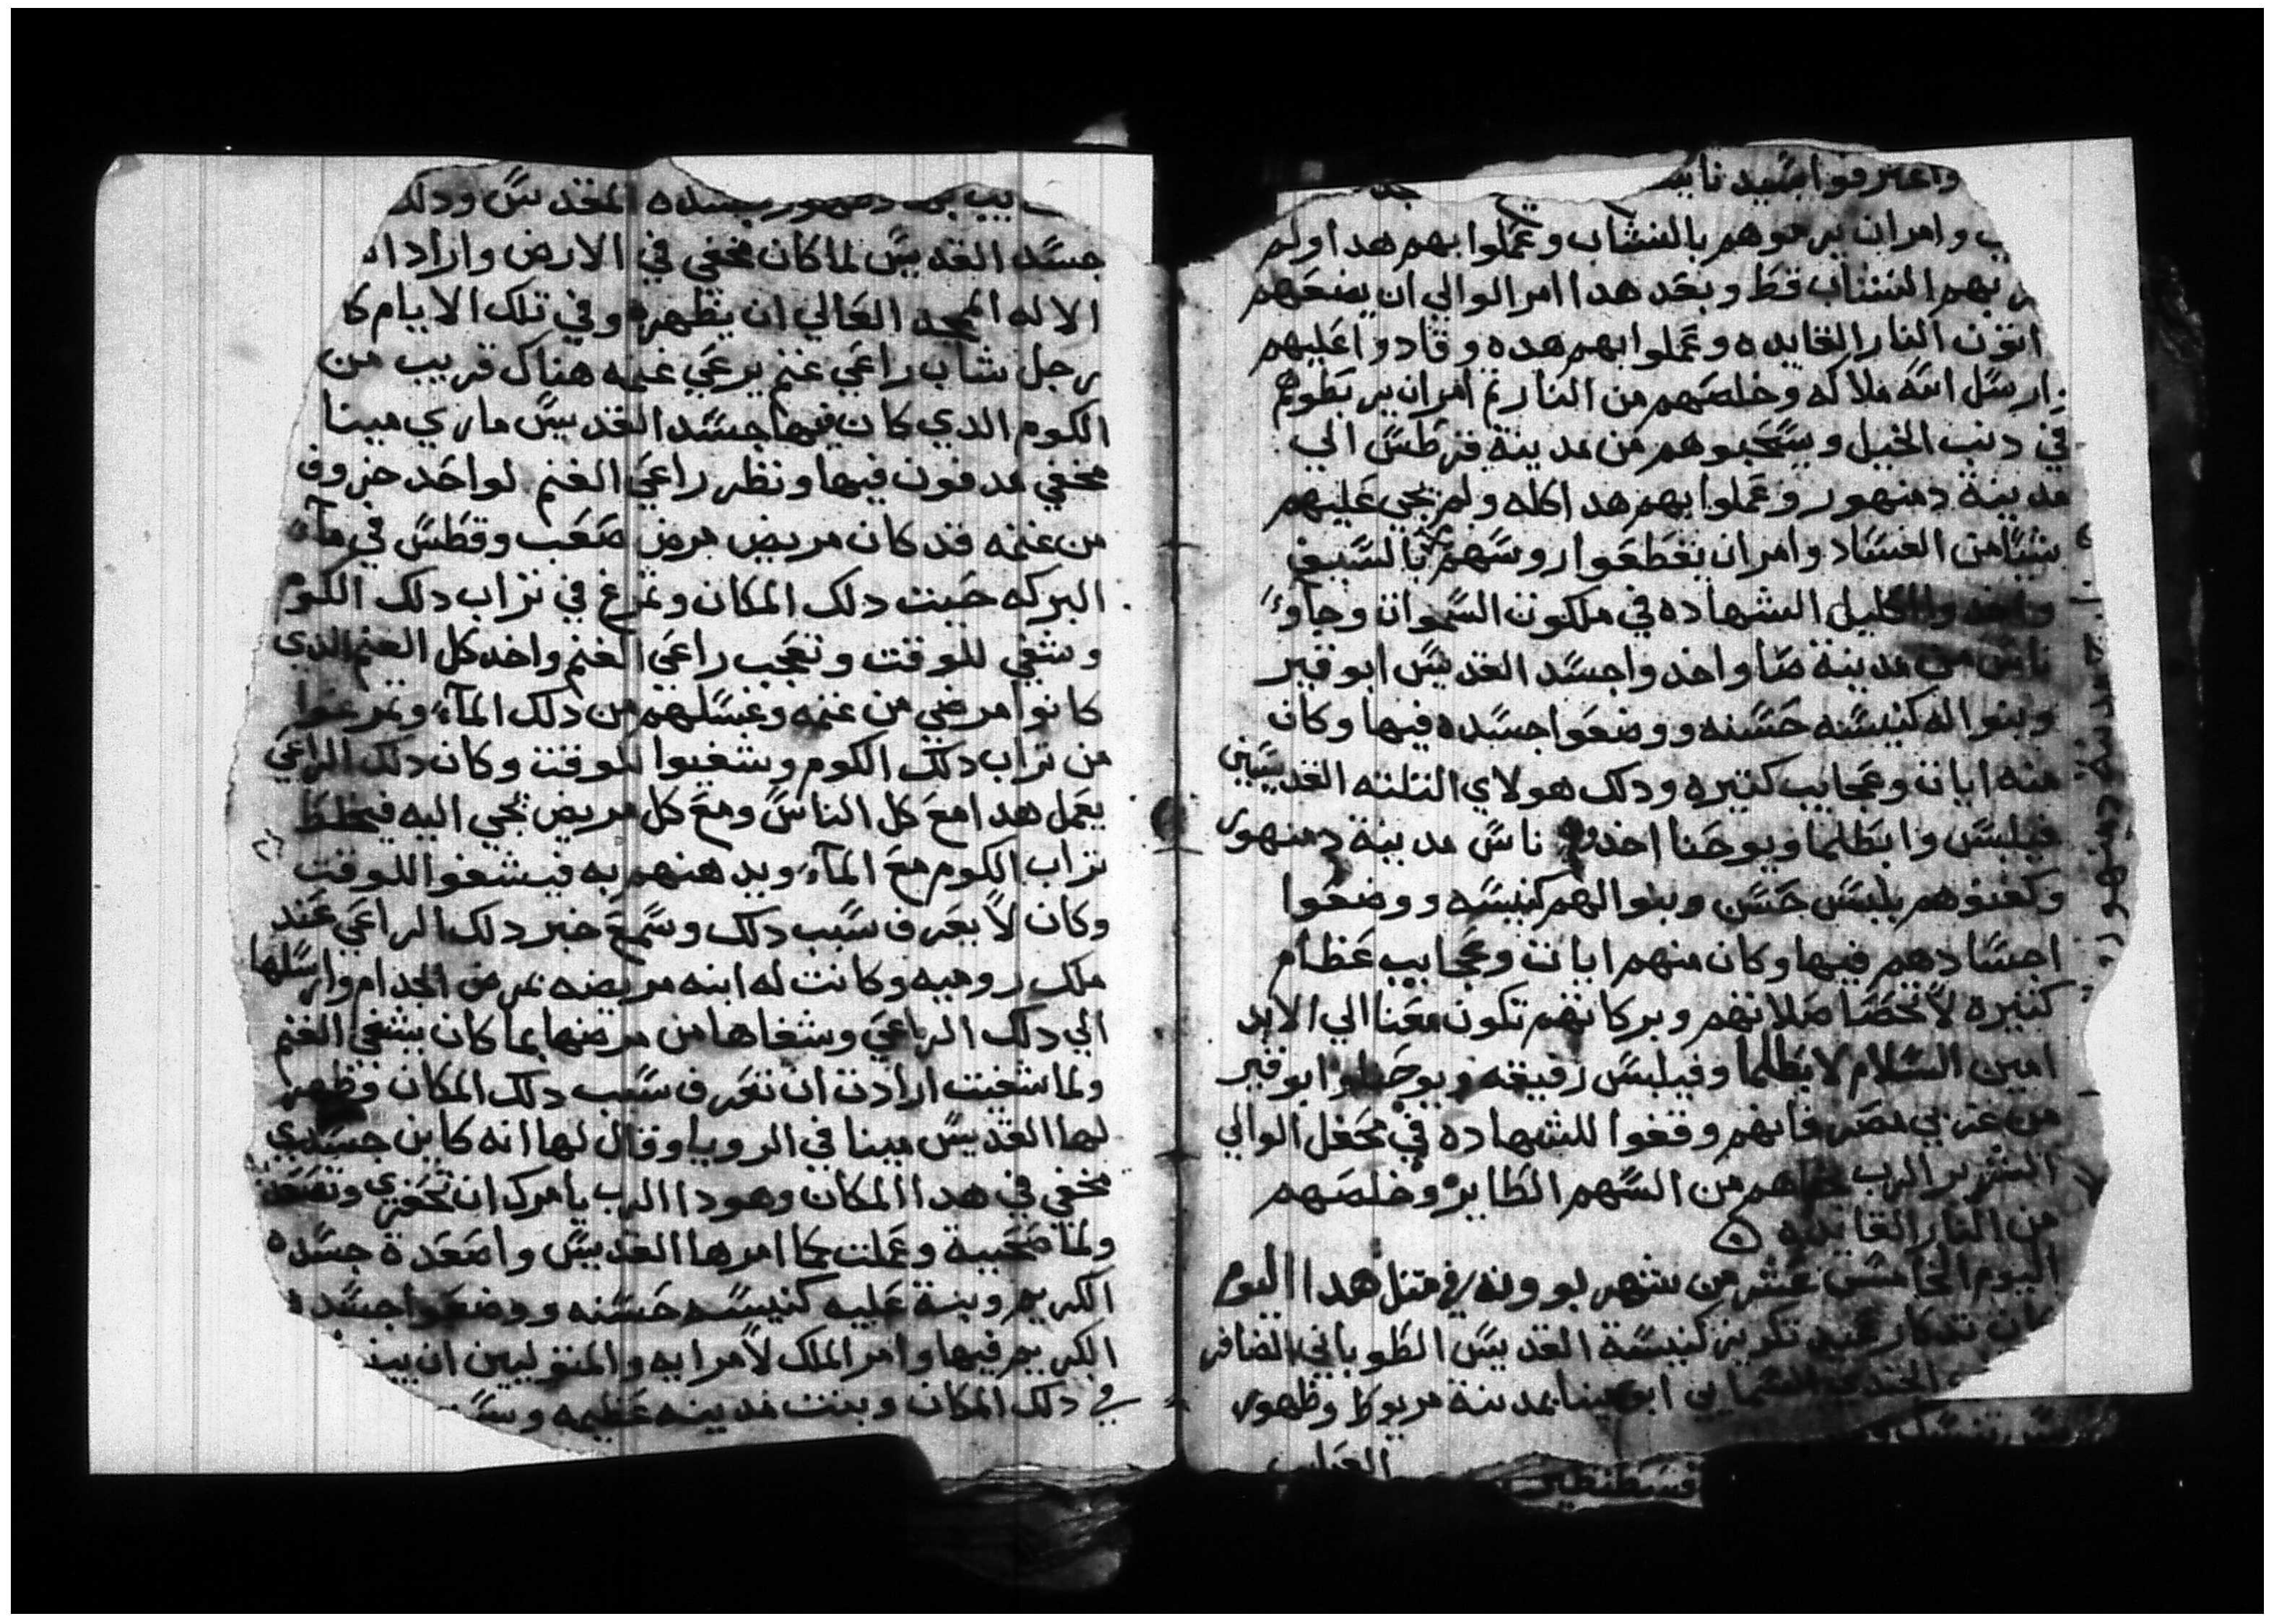 واعترفوا بسيدنا يسو
ب وامر ان يرموهم بالنشاب وعملوا بهم هدا ولم
بهم النشاب قط وبعد هدا امر الوالي ان يضعهم
اتون النار القايده وعملوا بهم هده وقادوا عليهم
ارسل الله ملاكه وخلصهم من النار تم امر ان يربطوهم
في دنب الخيل ويسحبوهم من مدينة قرطس الي
مدينة دمنهور وعملوا بهم هدا كله ولم يجي عليهم
شيا من الفساد وامر ان يقطعوا روسهم بالسيف
الشهاده في ملكوت السموات وجاوا
ناس من مدينة صا واخدوا جسد القديس ابو قير
وبنوا له كنيسه حسنه ووضعوا جسده فيها وكان
منه ايات وعجايب كتيره ودلك هولاي التلته القديسين
فيلبس وابطلما ويوحنا اخدوهم ناس مدينة دمنهور
وكفنوهم بلبس حسن وبنوا لهم كنيسه ووضعوا
اجسادهم فيها وكان منهم ايات وعجايب عظام
كتيره لا تحصا صلاتهم وبركاتهم تكون معنا الي الابد
امين السلام لابطلما وفيلبس رفيقه ويوحنا وابو قير
من غربي مصر فانهم وقفوا للشهاده في محفل الوالي
الشرير الرب من السهم الطاير وخلصهم
من النار القايده
اليوم الخامس عشر من شهر بوونه في متل هدا اليوم
كان تدكار عيد تكريز كنيسة القديس الطوباني الضافر
الجندي السمايي ابو مينا بمدينة مريوط وظهور
دمنهور بجسده المقدس ودلك
جسد القديس لما كان مخفي في الارض واراد ا
الاله الممجد العالي ان يظهره وفي تلك الايام كا
رجل شاب راعي غنم يرعي غنمه هناك قريب من
الكوم الدي كان فيها جسد القديس ماري مينا
مخفي مدفون فيها ونظر راعي الغنم لواحد خروف
من غنمه قد كان مريض مرض صعب وقطس في مآء
البركه حيت دلك المكان وتمرغ في تراب دلك الكوم
وشفي للوقت وتعجب راعي الغنم واخد كل الغنم الدي
كانوا مرضي من غنمه وغسلهم من دلك المآء وتمرغوا
من تراب دلك الكوم وشفيوا للوقت وكان دلك الراعي
يعمل هدا مع كل الناس ومع كل مريض يجي اليه فيخلط
تراب الكوم مع المآء ويدهنهم به فيشفوا للوقت
وكان لا يعرف سبب دلك وسمع خبر دلك الراعي عند
ملك روميه وكانت له ابنه مريضه بمرض الجدام وارسلها
الي دلك الراعي وشفاها من مرضها بما كان يشفي الغنم
ولما شفيت ارادت ان تعرف سبب دلك المكان وظهر
لها القديس مينا في الرويا وقال لها انه كاين جسدي
مخفي في هدا المكان وهودا الرب يامرك ان تحفري
ولما صحيية وعملت كما امرها القديس واصعدة جسده
الكريم وبنة عليه كنيسه حسنه ووضعوا جسده
الكريم فيها وامر الملك لامرايه والمتوليين ان يبنـ
في دلك المكان وبنت مدينه عظيمه